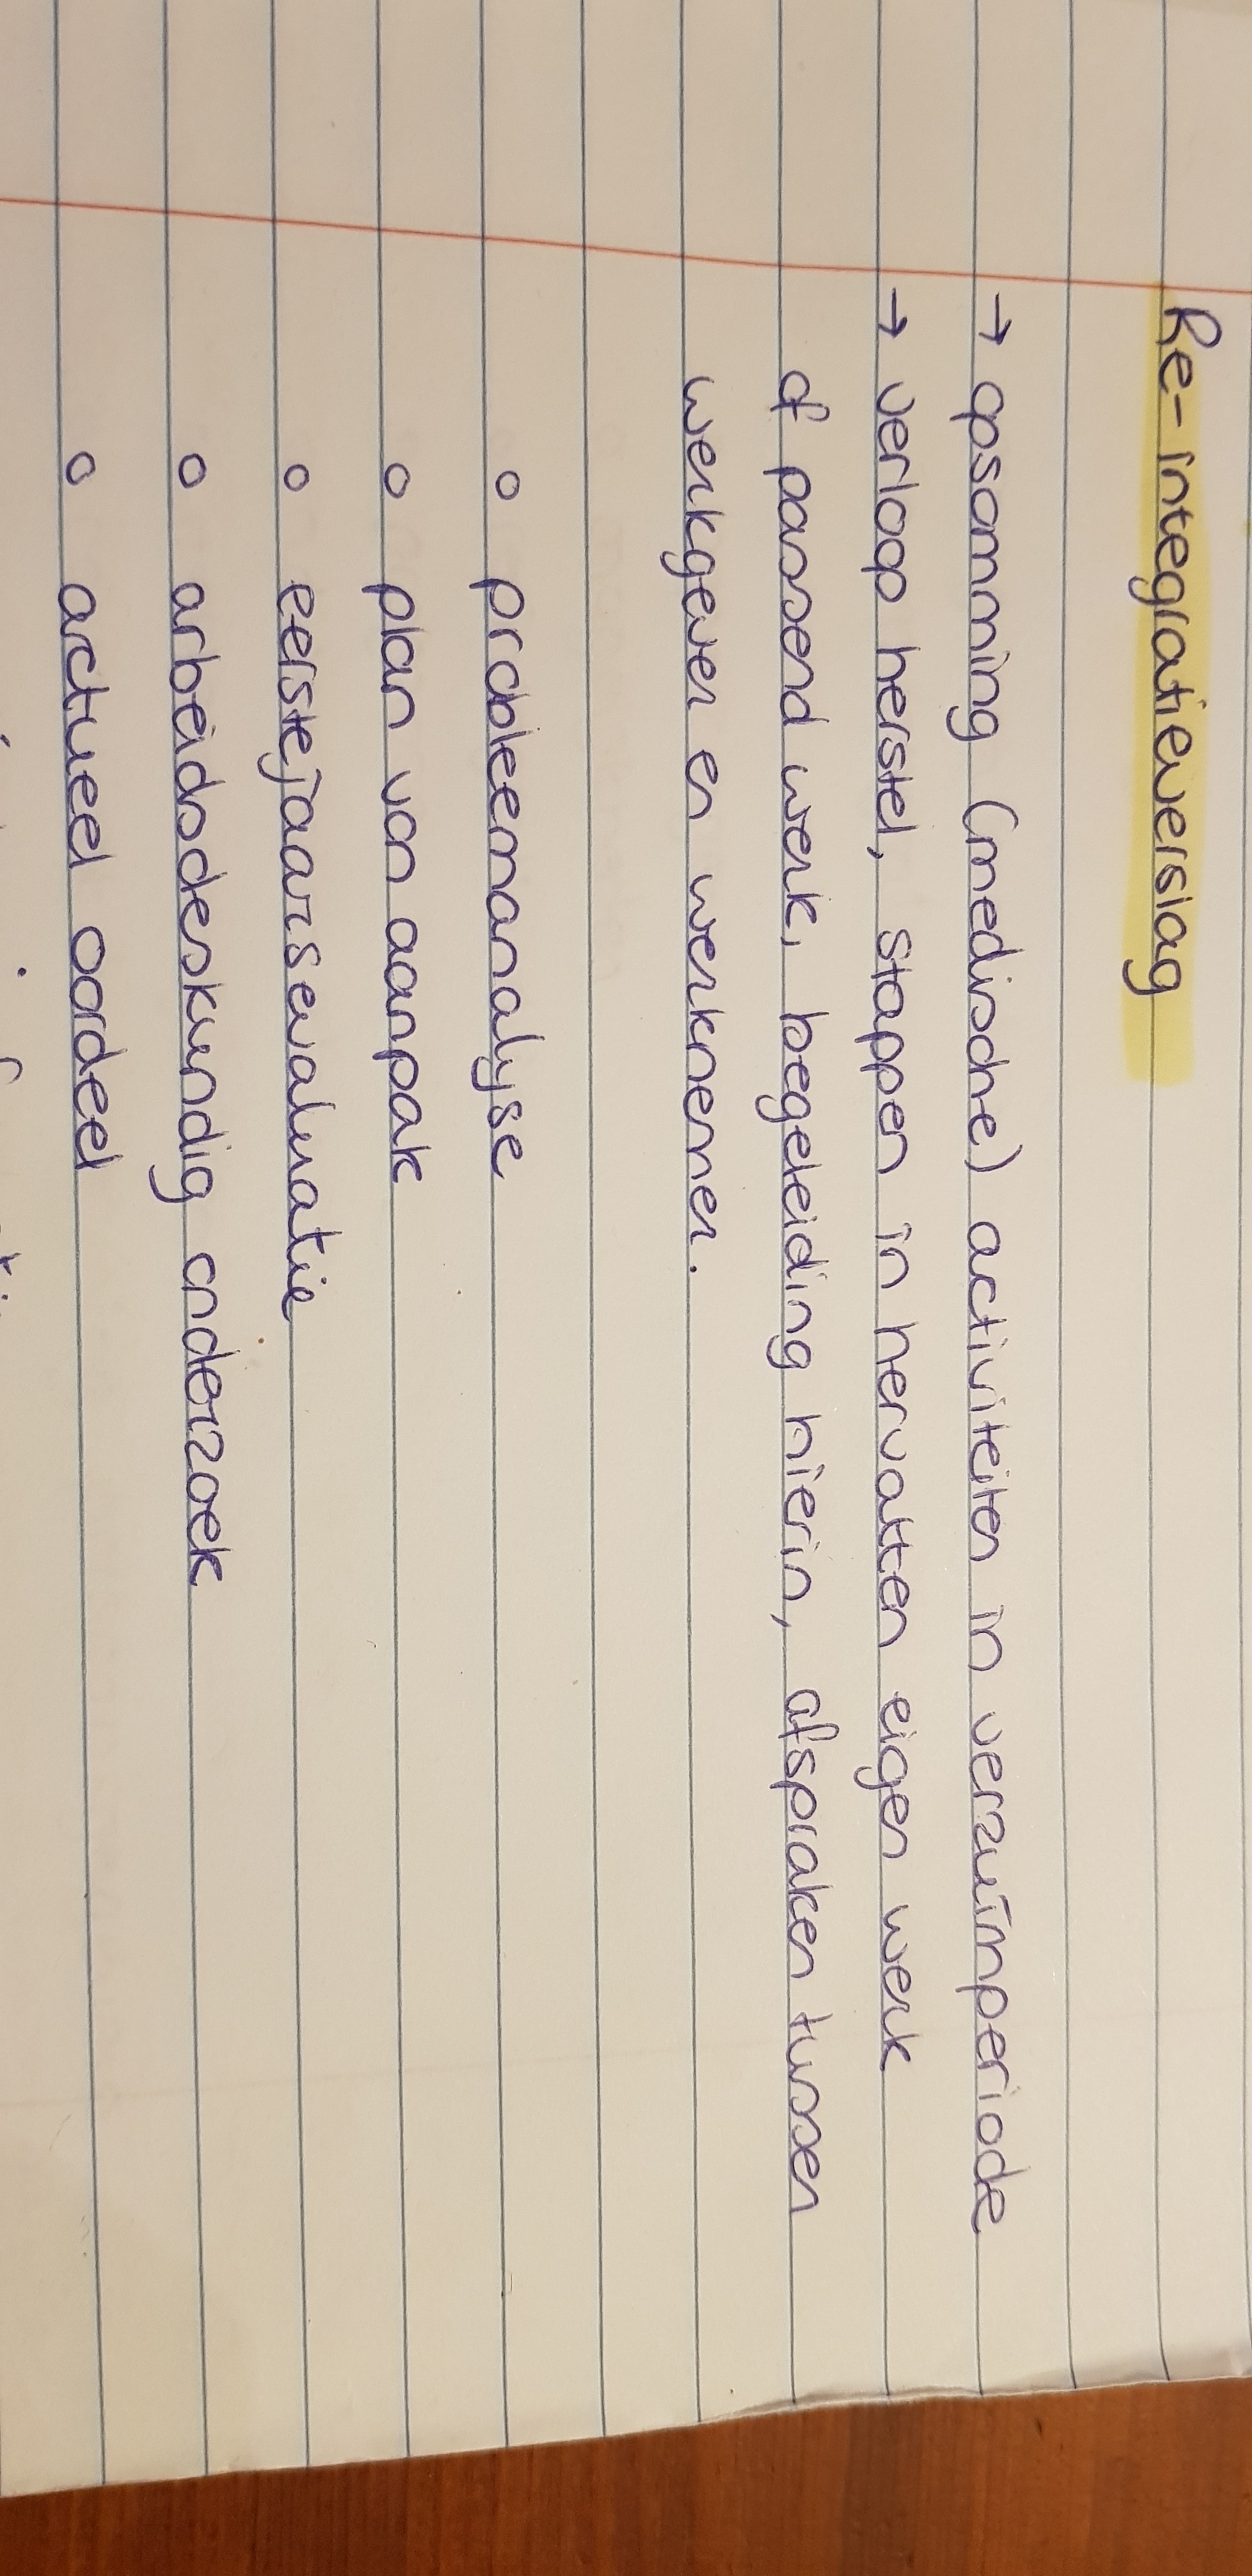 Re-integratieverslag
→ opsomming (medische) activiteiten in verzuimperiode
→ verloop herstel, stappen in hervatten eigen werk
of passend werk, begeleiding hierin, afspraken tussen
werkgever en werknemer.
o probleemanalyse
o plan van aanpak
o eerstejaarsevaluatie
o arbeidsdeskundig onderzoek
o actueel oordeel